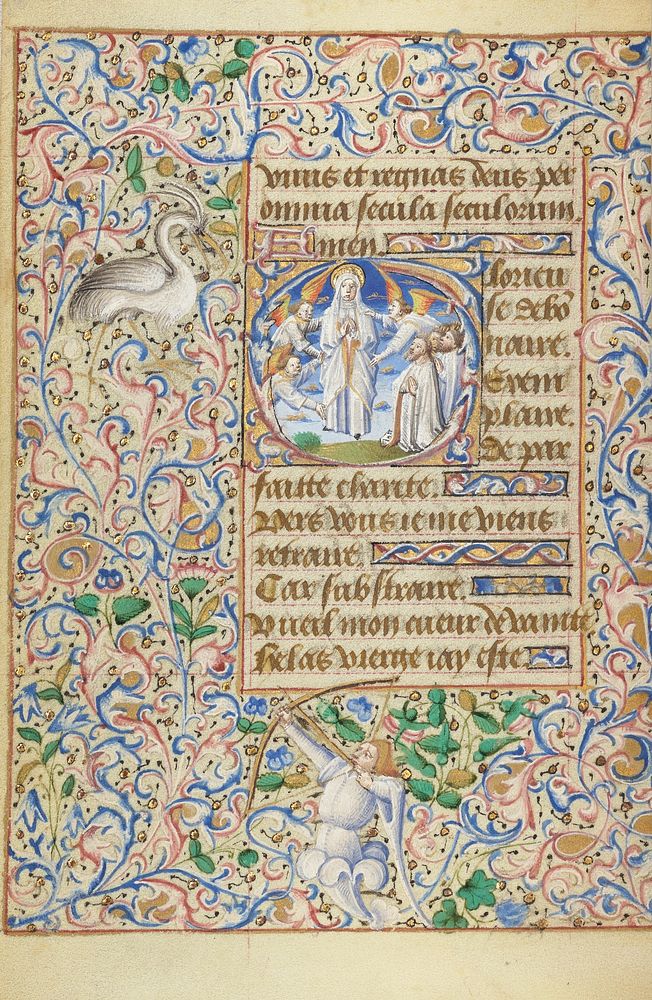 vivis et regnas deus per
omnia secula seculorum.
Amen.
Glorieu
se debō
naire.
Exem
plaire.
De par
faitte charite.
Vers vous ie me viens
retraire.
Car substraire.
Vueil mon cueur de vanite
Helas vierge iay este